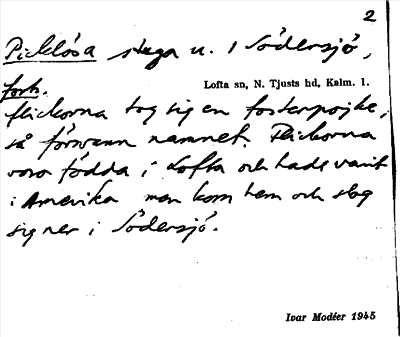 2
Picklösa stuga u. i Södersjö,
forts.
Lofta sn, N. Tjusts hd, Kalm. l.
flickorna tog sig en fosterpojke,
så försvann namnet. Flickorna
voro födda i Lofta och hade varit
i Amerika men kom hem och slog
sig ner i Södersjö.
Ivar Modéer 1945